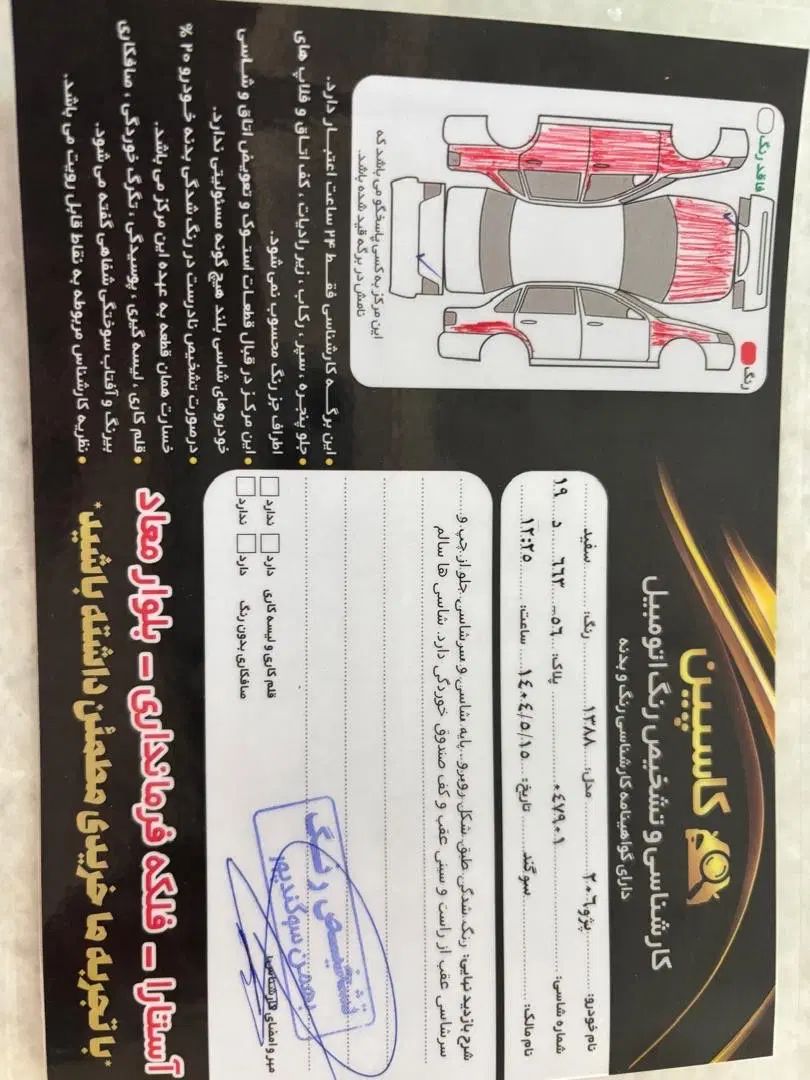 کاسپین
کارشناسی و تشخیص رنگ اتومبیل
دارای گواهینامه کارشناسی رنگ و بدنه
نام خودرو: پژو ۲۰۶ مدل: ۱۳۸۸ رنگ: سفید
شماره شاسی: ۰۴۷۹۰۱ پلاک: ۵۶ - ۶۶۳ د ۱۹
نام مالک: سوگند تاریخ: ۱۴۰۴/۵/۱۵ ساعت: ۱۲:۲۵
شرح بازدید نهایی: رنگ شدگی طبق شکل روبرو. پایه شاسی و سرشاسی جلو از چپ و
سرشاسی عقب از راست و سینی عقب و کف صندوق خوردگی دارد. شاسی ها سالم
قلم کاری و لیسه کاری دارد ندارد
صافکاری بدون رنگ دارد ندارد
مهر و امضای کارشناس:
تشخیص رنگ
بهمن سوگندپور
فاقد رنگ
رنگ
این مرکز به کسی پاسخگو می باشد که
نامش در برگه قید شده باشد.
• این برگه کارشناسی فقط ۲۴ ساعت اعتبار دارد.
• جلو پنجره، سپر، رکاب، زیر رادیات، کف اتاق و فلاپ های
اطراف جز رنگ محسوب نمی شود.
• این مرکز در قبال قطعات استوک و تعویض اتاق و شاسی
خودروهای شاسی بلند هیچ گونه مسئولیتی ندارد.
• درصورت تشخیص نادرست در رنگ شدگی بدنه خودرو ۲۰ %
خسارت همان قطعه به عهده این مرکز می باشد.
• قلم کاری، لیسه گیری، پوسیدگی، تگرگ خوردگی، صافکاری
بیرنگ و آفتاب سوختگی شفاهی گفته می شود.
• نظریه کارشناس مربوطه به نقاط قابل رویت می باشد.
آستارا - فلکه فرمانداری - بلوار معاد
*با تجربه ما خریدی مطمئن داشته باشید*